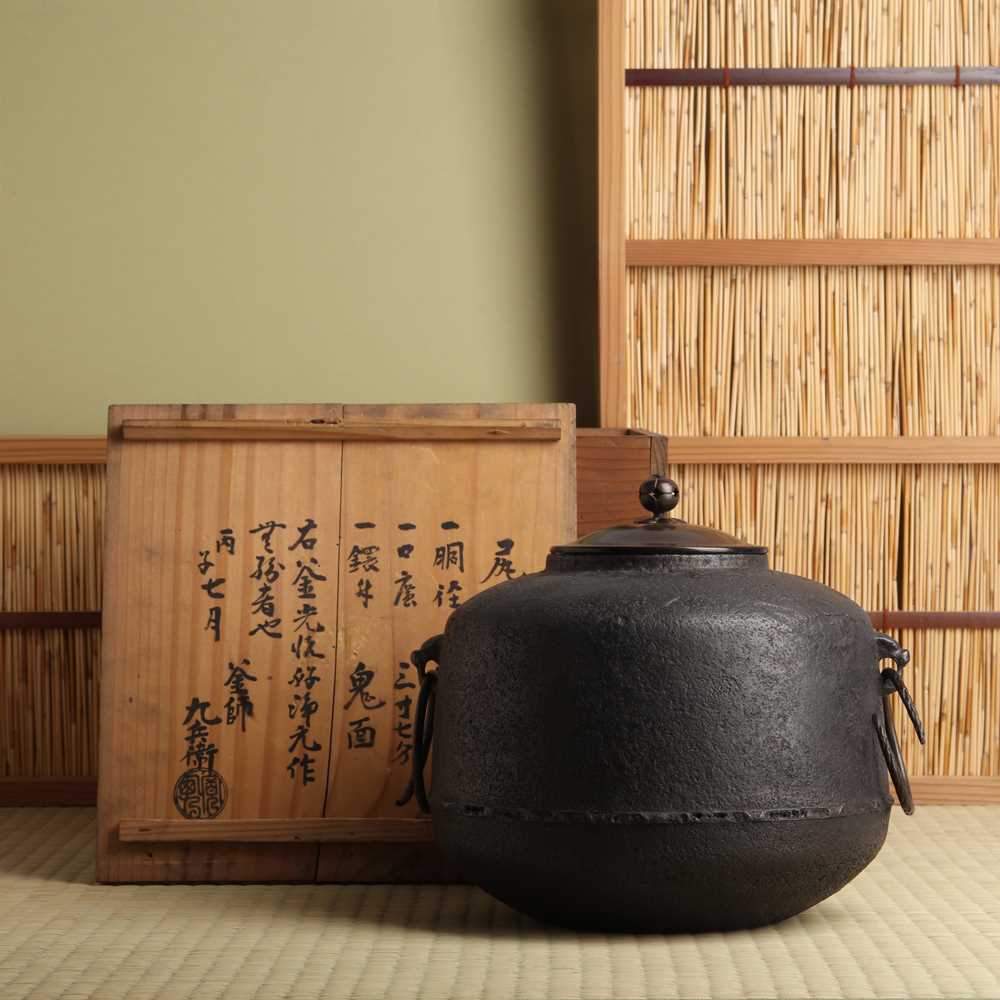 尾
一胴径
一口広 三寸七分
一鐶付 鬼面
右釜光悦好浄元作
無疑者也
丙子七月
釜師
九兵衛